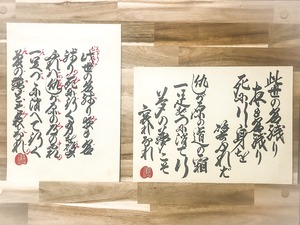 此世の名残り
夜も名残り
死に行く身を
譬ふれば
仇しが原の道の霜
一足づつに消えて行
夢の夢こそ
哀れなれ
此世の名残り 夜も名
残り 死に行く身を
一足づつに消えて行く
夢の夢こそ哀れなれ